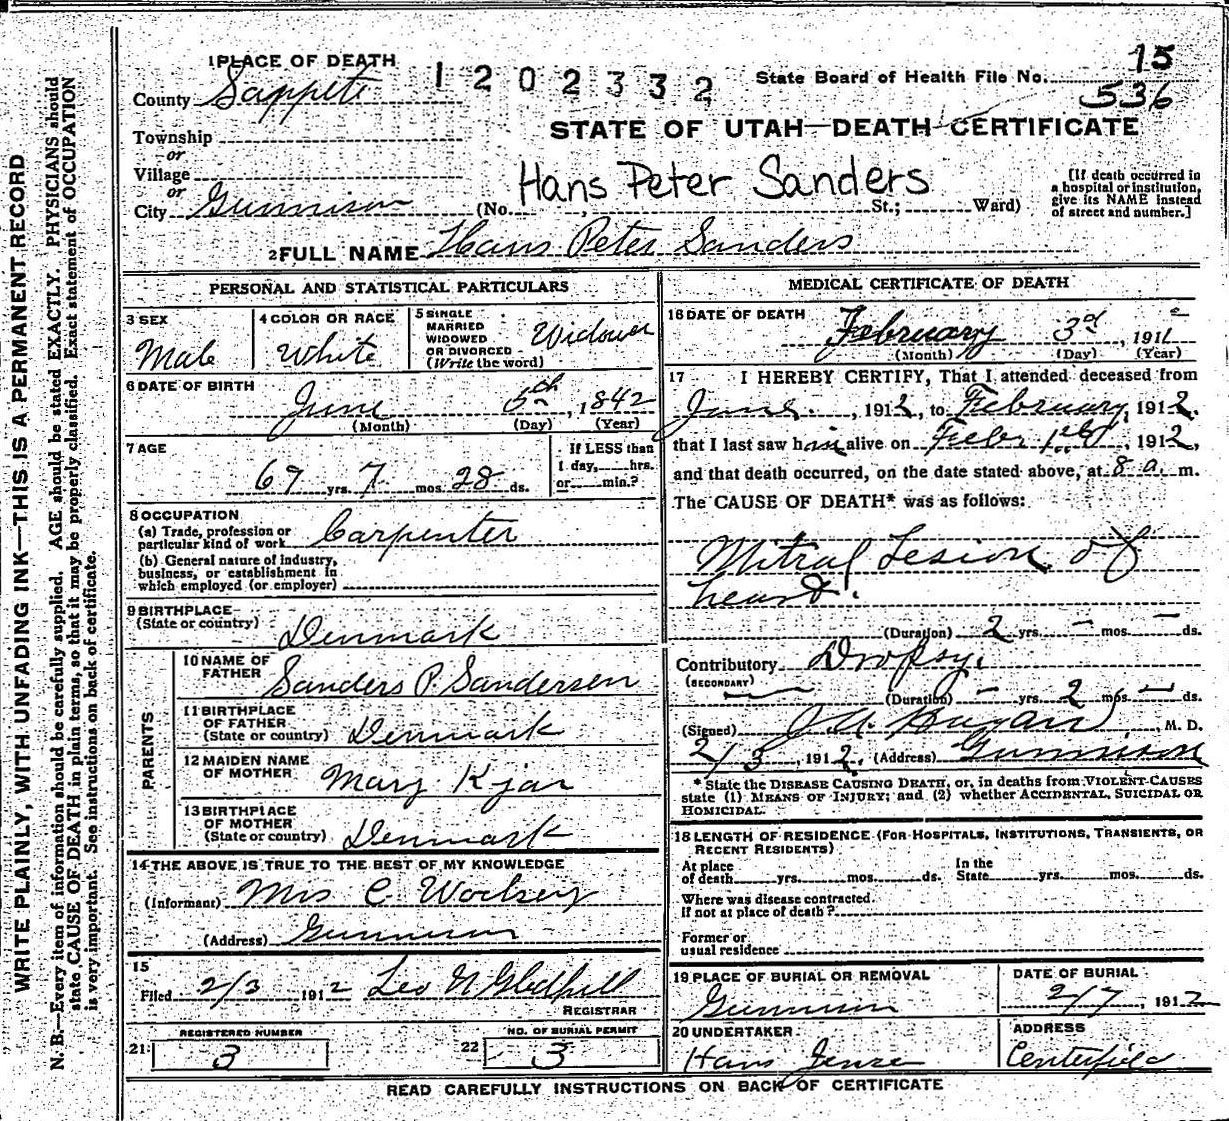 WRITE PLAINLY, WITH UNFADING INK—THIS IS A PERMANENT RECORD
N. B.—Every item of information should be carefully supplied. AGE should be stated EXACTLY. PHYSICIANS should
state CAUSE OF DEATH in plain terms, so that it may be properly classified. Exact statement of OCCUPATION
is very important. See instructions on back of certificate.
1 PLACE OF DEATH
1202332
State Board of Health File No. 15
536
County Sanpete
STATE OF UTAH—DEATH CERTIFICATE
Township
or
Village
or
City Gunnison
Hans Peter Sanders
(No. , St.; Ward)
[If death occurred in
a hospital or institution,
give its NAME instead
of street and number.]
2 FULL NAME Hans Peter Sanders
PERSONAL AND STATISTICAL PARTICULARS
3 SEX
Male
4 COLOR OR RACE
White
5 SINGLE
MARRIED
WIDOWED
OR DIVORCED
(Write the word)
Widower
6 DATE OF BIRTH
June 5th, 1842
(Month) (Day) (Year)
7 AGE
69 yrs. 7 mos. 28 ds.
If LESS than
1 day, hrs.
or min.?
8 OCCUPATION
(a) Trade, profession or
particular kind of work Carpenter
(b) General nature of industry,
business, or establishment in
which employed (or employer)
9 BIRTHPLACE
(State or country) Denmark
PARENTS
10 NAME OF
FATHER Sanders P. Sandersen
11 BIRTHPLACE
OF FATHER
(State or country) Denmark
12 MAIDEN NAME
OF MOTHER Mary Kjar
13 BIRTHPLACE
OF MOTHER
(State or country) Denmark
14 THE ABOVE IS TRUE TO THE BEST OF MY KNOWLEDGE
(Informant) Mrs C. Woolsey
(Address) Gunnison
15
Filed 2/3 1912 Leo N Gledhill
REGISTRAR
REGISTERED NUMBER
21 3
NO. OF BURIAL PERMIT
22 3
MEDICAL CERTIFICATE OF DEATH
16 DATE OF DEATH
February 3rd, 1912
(Month) (Day) (Year)
17 I HEREBY CERTIFY, That I attended deceased from
June, 1912, to February, 1912,
that I last saw him alive on Feb 1st, 1912,
and that death occurred, on the date stated above, at 8 a. m.
The CAUSE OF DEATH* was as follows:
Mitral Lesion of
heart.
(Duration) 2 yrs. – mos. – ds.
Contributory Dropsy.
(SECONDARY)
(Duration) – yrs. 2 mos. – ds.
(Signed) M. D.
2/3, 1912. (Address) Gunnison
* State the DISEASE CAUSING DEATH, or, in deaths from VIOLENT CAUSES
state (1) MEANS OF INJURY; and (2) whether ACCIDENTAL, SUICIDAL OR
HOMICIDAL.
18 LENGTH OF RESIDENCE (FOR HOSPITALS, INSTITUTIONS, TRANSIENTS, OR
RECENT RESIDENTS)
At place
of death yrs. mos. ds.
In the
State yrs. mos. ds.
Where was disease contracted.
If not at place of death?
Former or
usual residence
19 PLACE OF BURIAL OR REMOVAL
Gunnison
DATE OF BURIAL
2/7, 1912
20 UNDERTAKER
Hans Jense
ADDRESS
Centerfield
READ CAREFULLY INSTRUCTIONS ON BACK OF CERTIFICATE